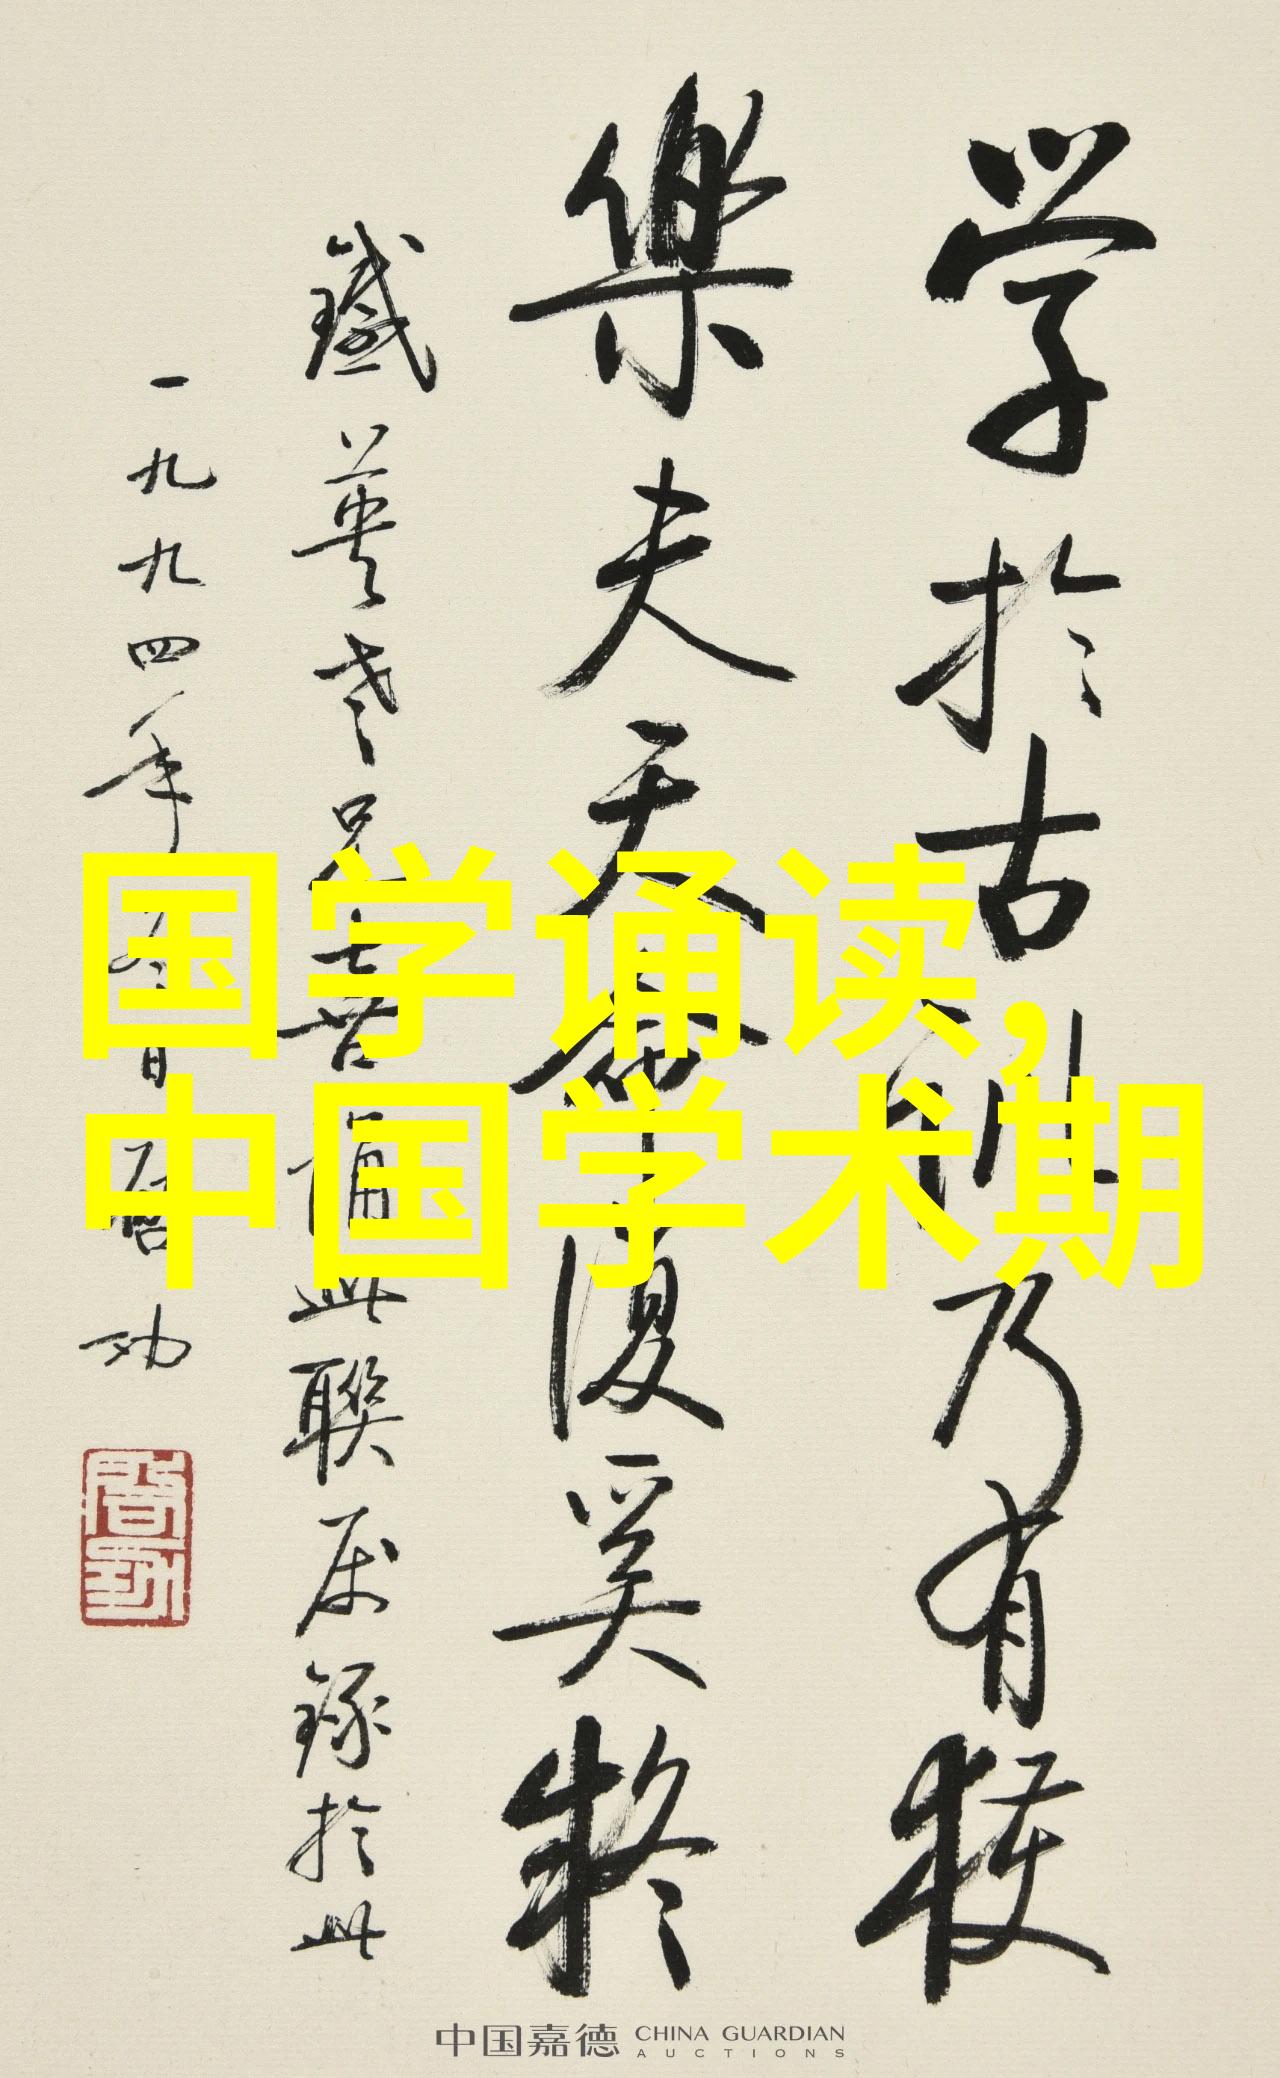 学於古训乃有獲
樂夫天命復奚疑
鐵英老兄喜誦此聯属録於此
一九九四年冬日启功
启功
国学诵读,
中国学术期
中国嘉德 CHINA GUARDIAN
AUCTIONS